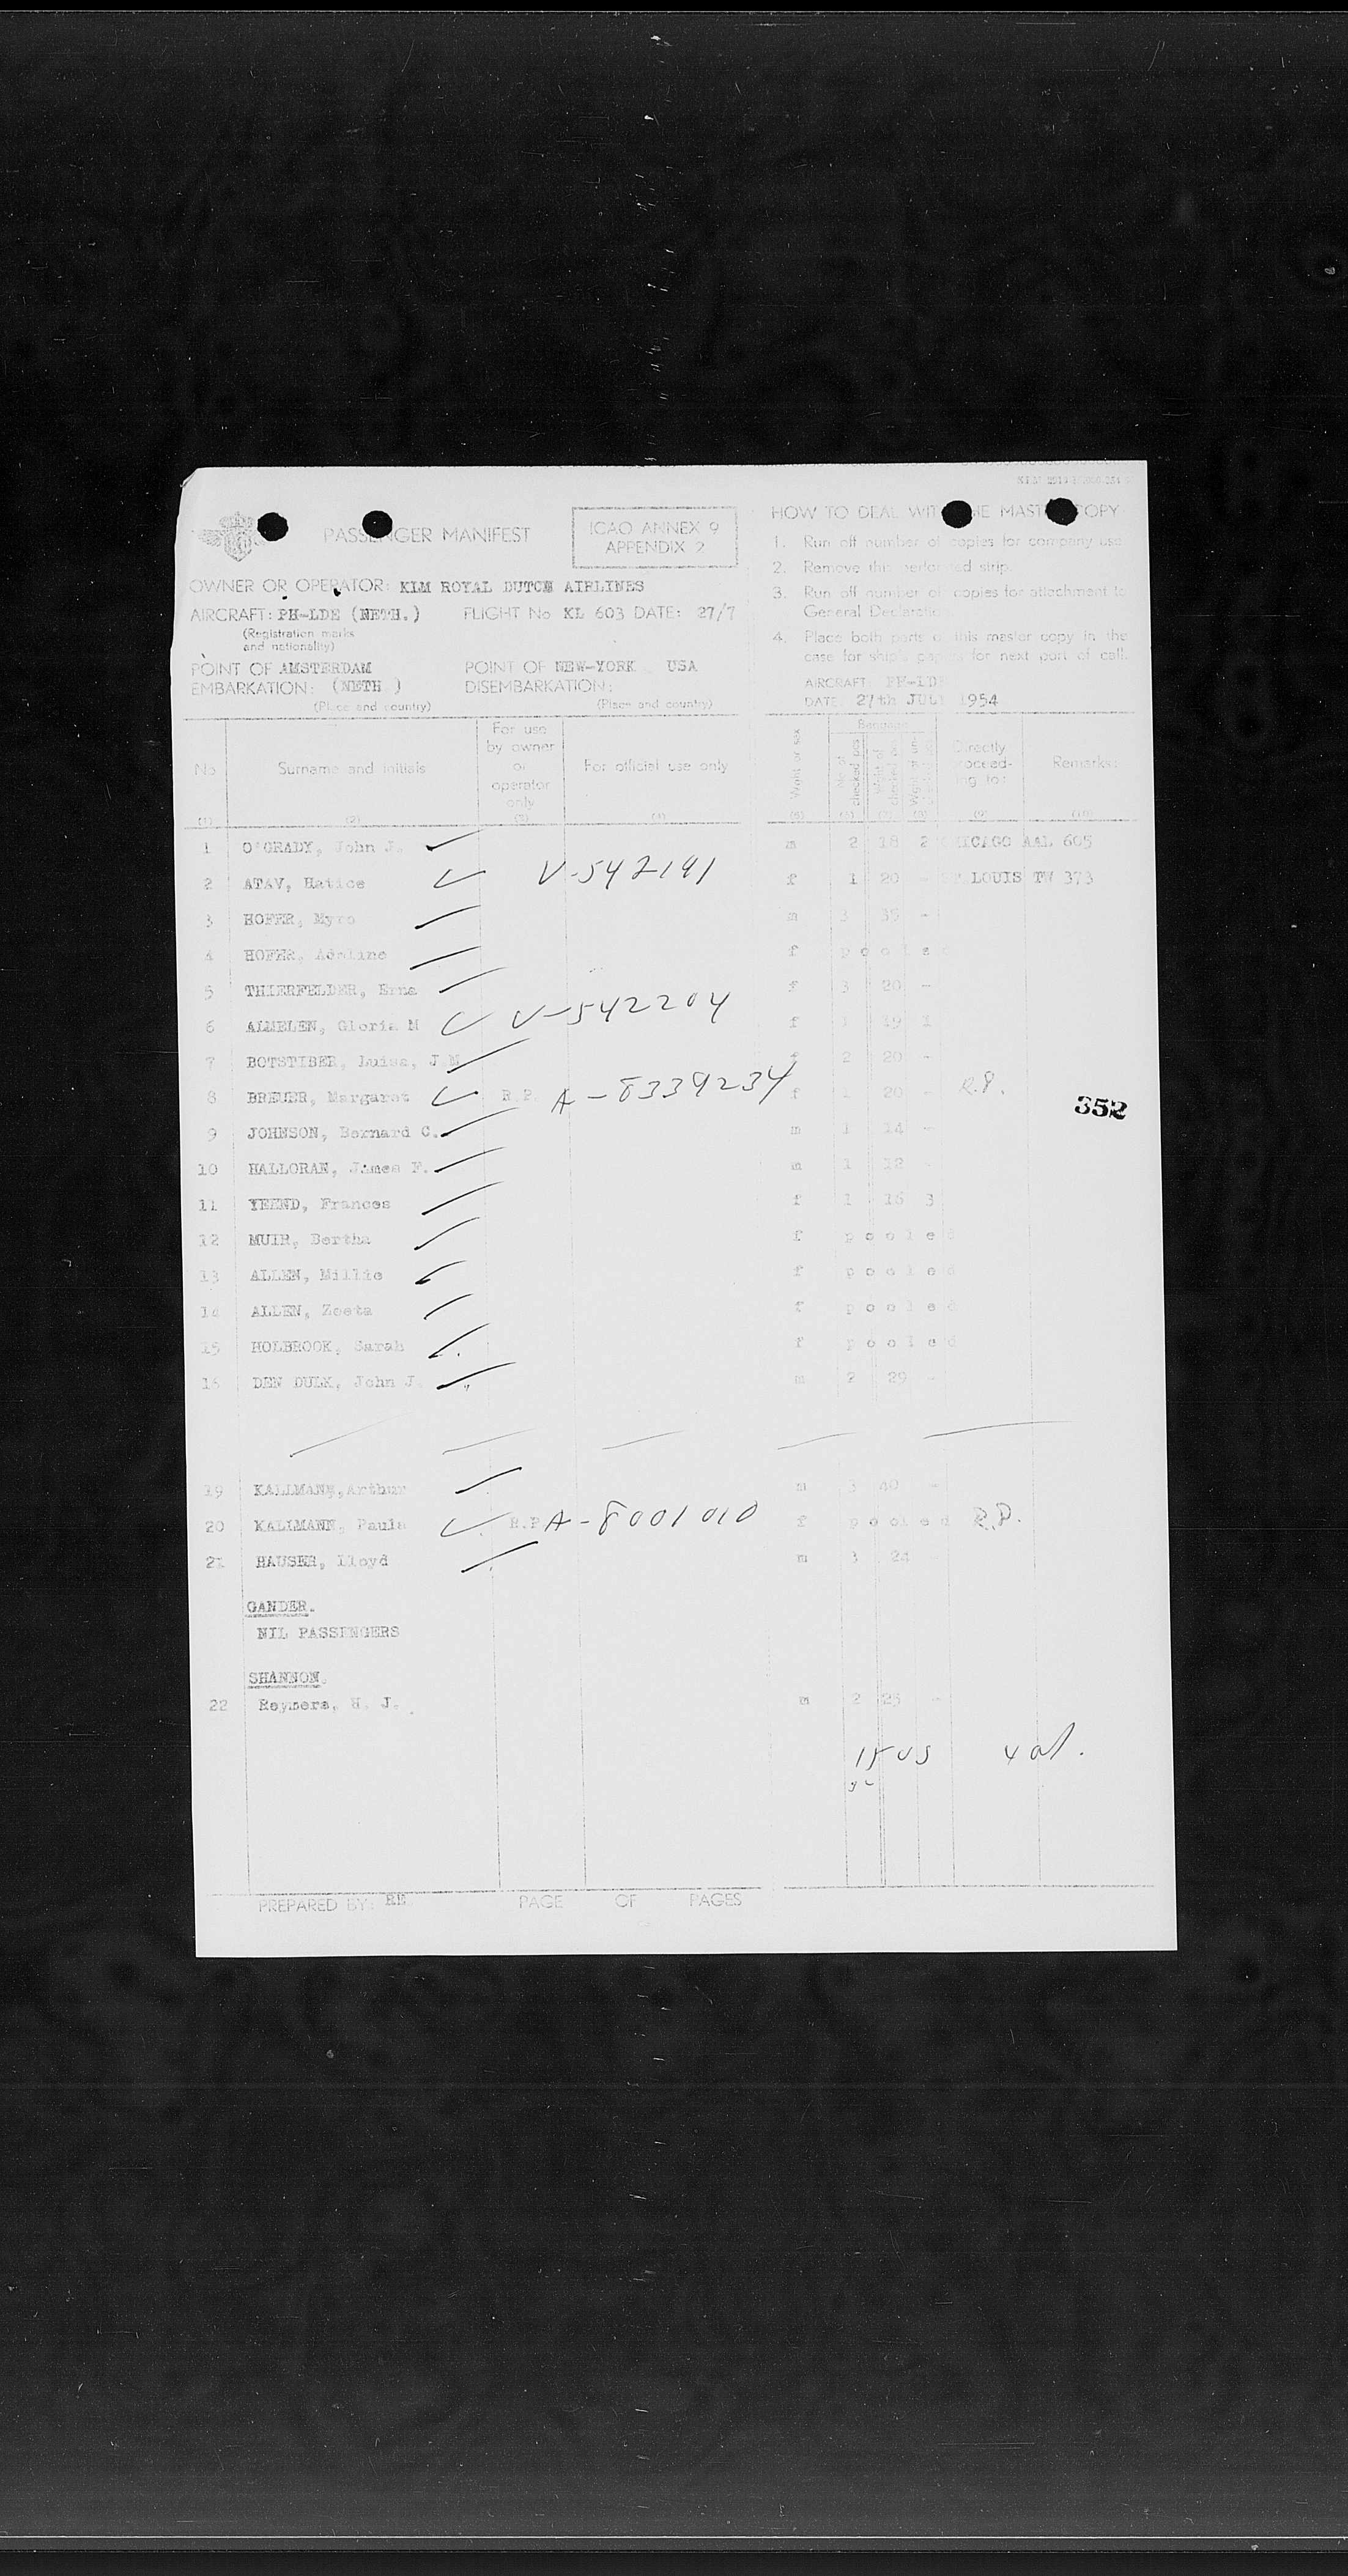 PASSENGER MANIFEST
ICAO ANNEX 9
APPENDIX 2
OWNER OR OPERATOR: KLM ROYAL DUTCH AIRLINES
AIRCRAFT: PH-LDE (NETH.) FLIGHT No KL 603 DATE: 27/7
(Registration marks
and nationality)
POINT OF AMSTERDAM POINT OF NEW-YORK USA
EMBARKATION: (NETH ) DISEMBARKATION:
(Place and country) (Place and country)
HOW TO DEAL WITH THE MASTER COPY
1. Run off number of copies for company use.
2. Remove this perforated strip.
3. Run off number of copies for attachment to
General Declaration
4. Place both parts of this master copy in the
case for ship's papers for next port of call.
AIRCRAFT: PH-LDE
DATE 27th JULY 1954
No Surname and initials For use by owner or operator only For official use only Directly proceeding to: Remarks:
1 O'GRADY, John J. m 2 18 2 CHICAGO AAL 605
2 ATAV, Hatice V-542191 f 1 20 - ST. LOUIS TW 373
3 HOFER, Myro m 3 35 -
4 HOFER, Adeline f pooled
5 THIERFELDER, Erna f 3 20 -
6 ALMELEN, Gloria M V-542204 f 1 19 1
7 BOTSTIBER, Luisa, J.M f 2 20 -
8 BREUER, Margaret R.P. A-8339234 f 1 20 - R.P.
352
9 JOHNSON, Bernard C. m 1 14 -
10 HALLORAN, James F. m 1 12 -
11 YEEND, Frances f 1 16 3
12 MUIR, Bertha f pooled
13 ALLEN, Millie f pooled
14 ALLEN, Zeeta f pooled
15 HOLBROOK, Sarah f pooled
16 DEN DULK, John J. m 2 29 -
19 KALLMANN, Arthur m 3 40 -
20 KALLMANN, Paula R.P. A-8001010 f pooled R.P.
21 HAUSER, Lloyd m 3 24
GANDER.
NIL PASSENGERS
SHANNON.
22 Reymers, H. J. m 2 25 -
15 US 4 al.
PREPARED BY: RE PAGE OF PAGES